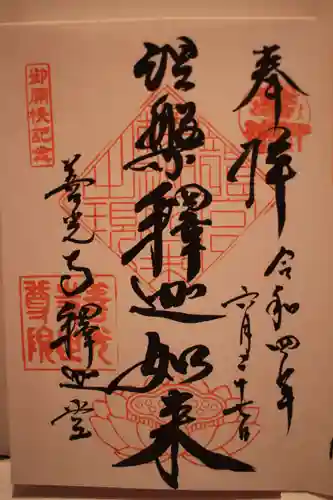 奉拝
令和四年
六月二十七日
涅槃釋迦如来
善光寺釋迦堂
御開帳記念